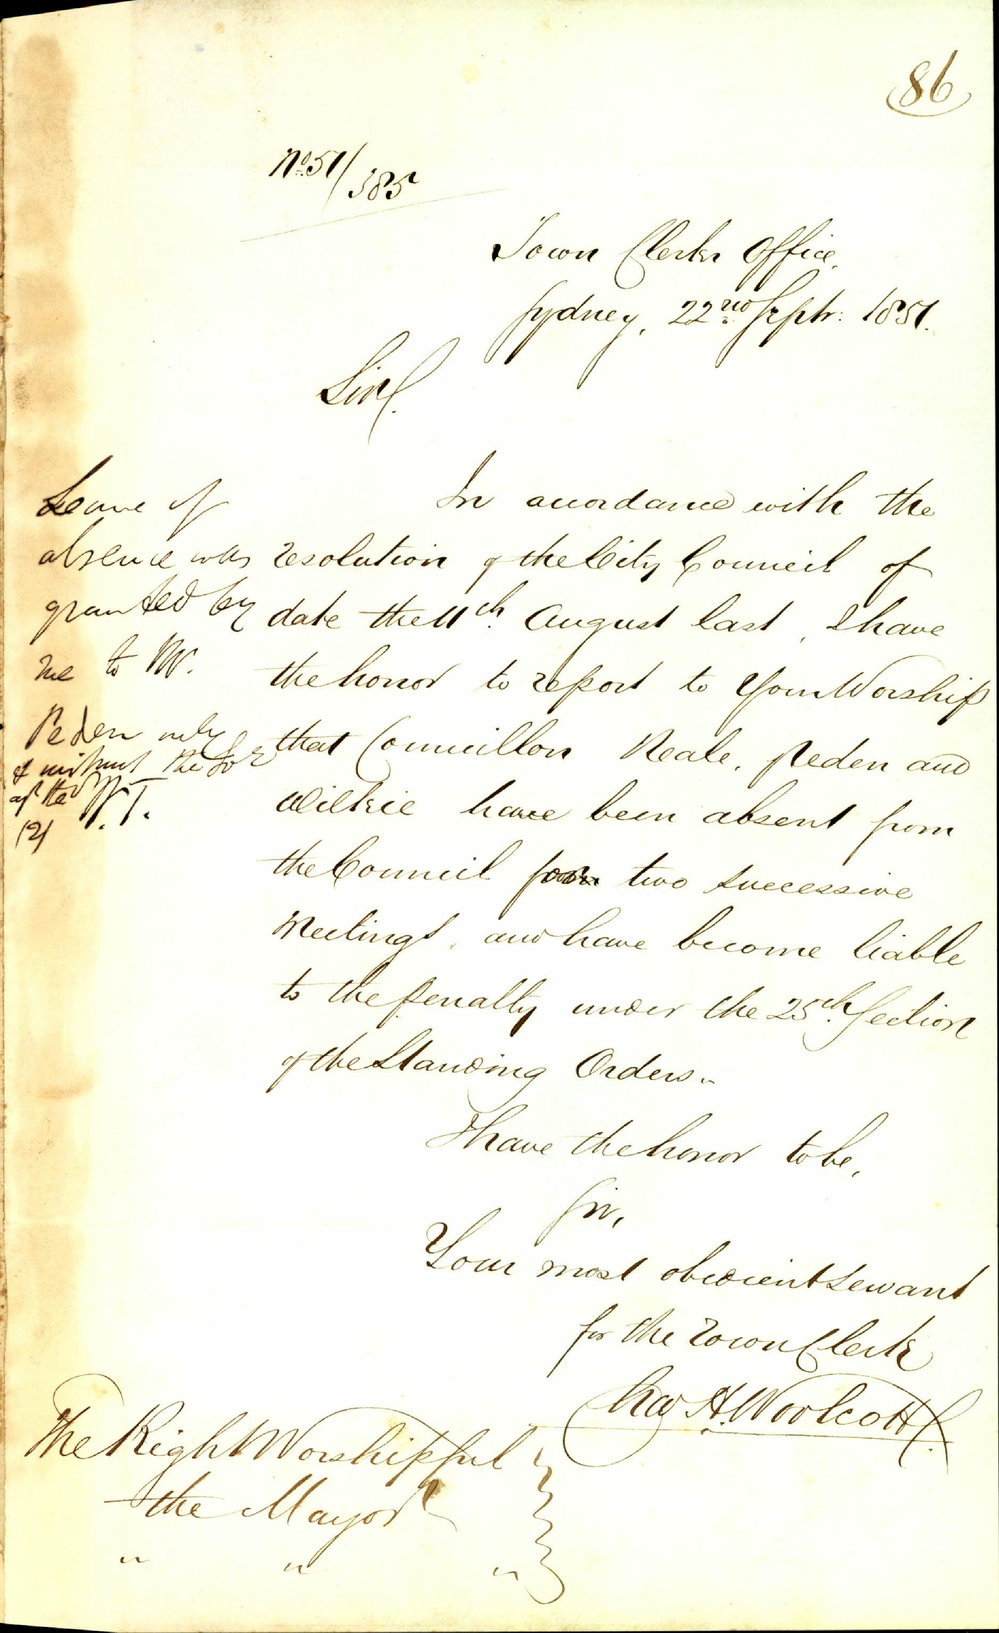 86
No. 51/385
Town Clerks Office,
Sydney, 22nd Septr. 1851.
Sir,
In accordance with the
resolution of the City Council of
date the 11th. August last, I have
the honor to report to Your Worship
that Councillors Neale, Peden and
Wilkie have been absent from
the Council for two successive
Meetings, and have become liable
to the penalty under the 25th. Section
of the Standing Orders.
I have the honor to be,
Sir,
Your most obedient Servant
for the Town Clerk
Chas H. Woolcott
The Right Worshipful
the Mayor
" " "
Leave of
absence was
granted by
me to Mr.
Peden only
& without the
of the W.T.
(2)